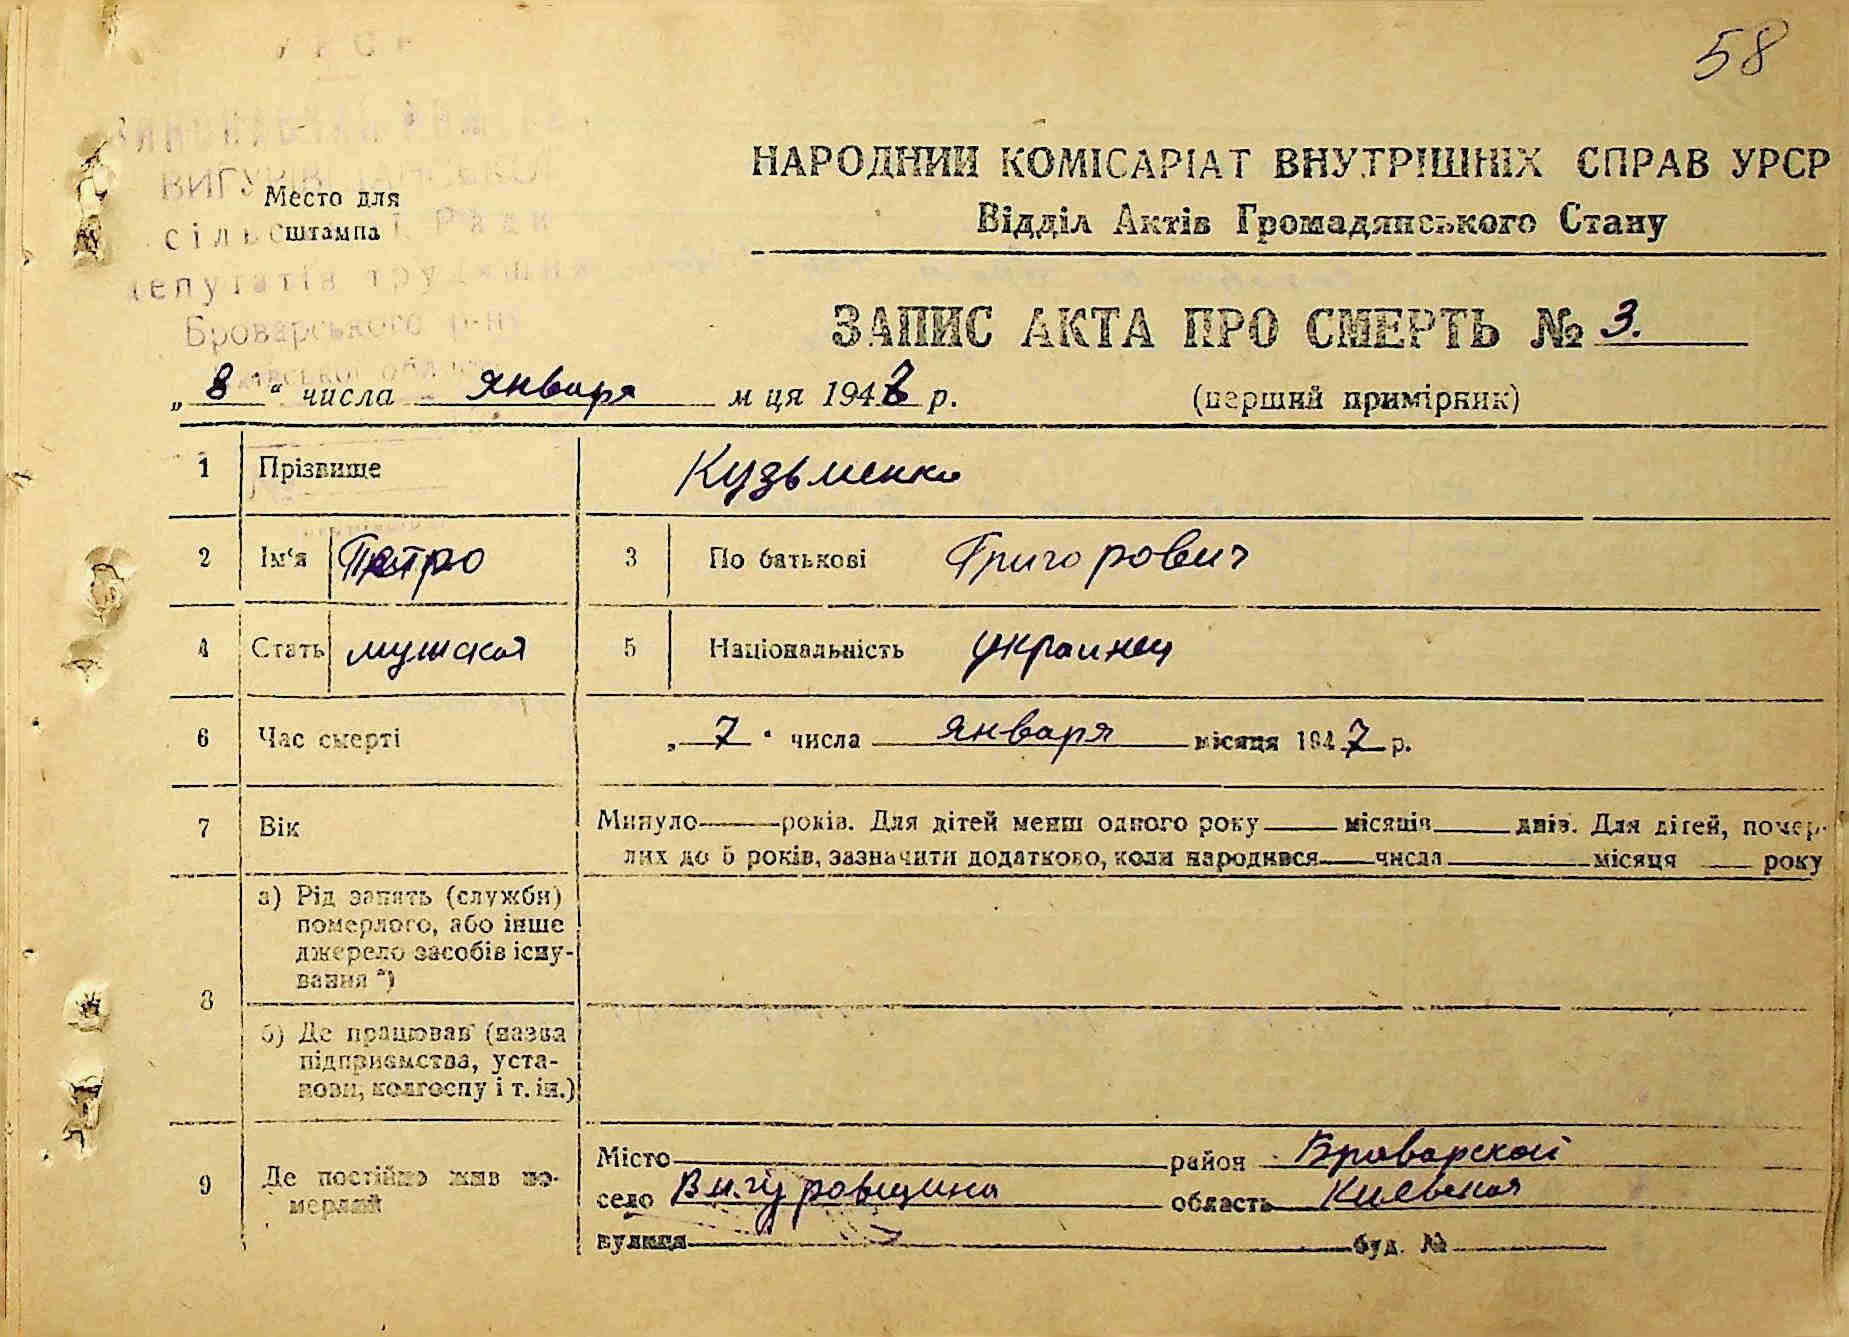 58
ВИГУРІВ
Место для
штампа
сіль Ради
депутатів трудящих
Броварського р-ну
НАРОДНИЙ КОМІСАРІАТ ВНУТРІШНІХ СПРАВ УРСР
Відділ Актів Громадянського Стану
ЗАПИС АКТА ПРО СМЕРТЬ № 3.
„ 8 “ числа января м ця 1947 р. (перший примірник)
1 Прізвище Кузьменко
2 Ім‘я Петро 3 По батькові Григорович
4 Стать мужской 5 Національність украинец
6 Час смерті „ 7 “ числа января місяця 1947 р.
7 Вік Минуло років. Для дітей менш одного року місяців днів. Для дітей, помер-
лих до 5 років, зазначити додатково, коли народився числа місяця року
8 а) Рід занять (служби)
померлого, або інше
джерело засобів існу-
вання *)
б) Де працював (назва
підприємства, уста-
нови, колгоспу і т. ін.)
9 Де постійно жив по-
мерлий
Місто район Броварской
село Вигуровщина область Киевская
вулиця буд. №